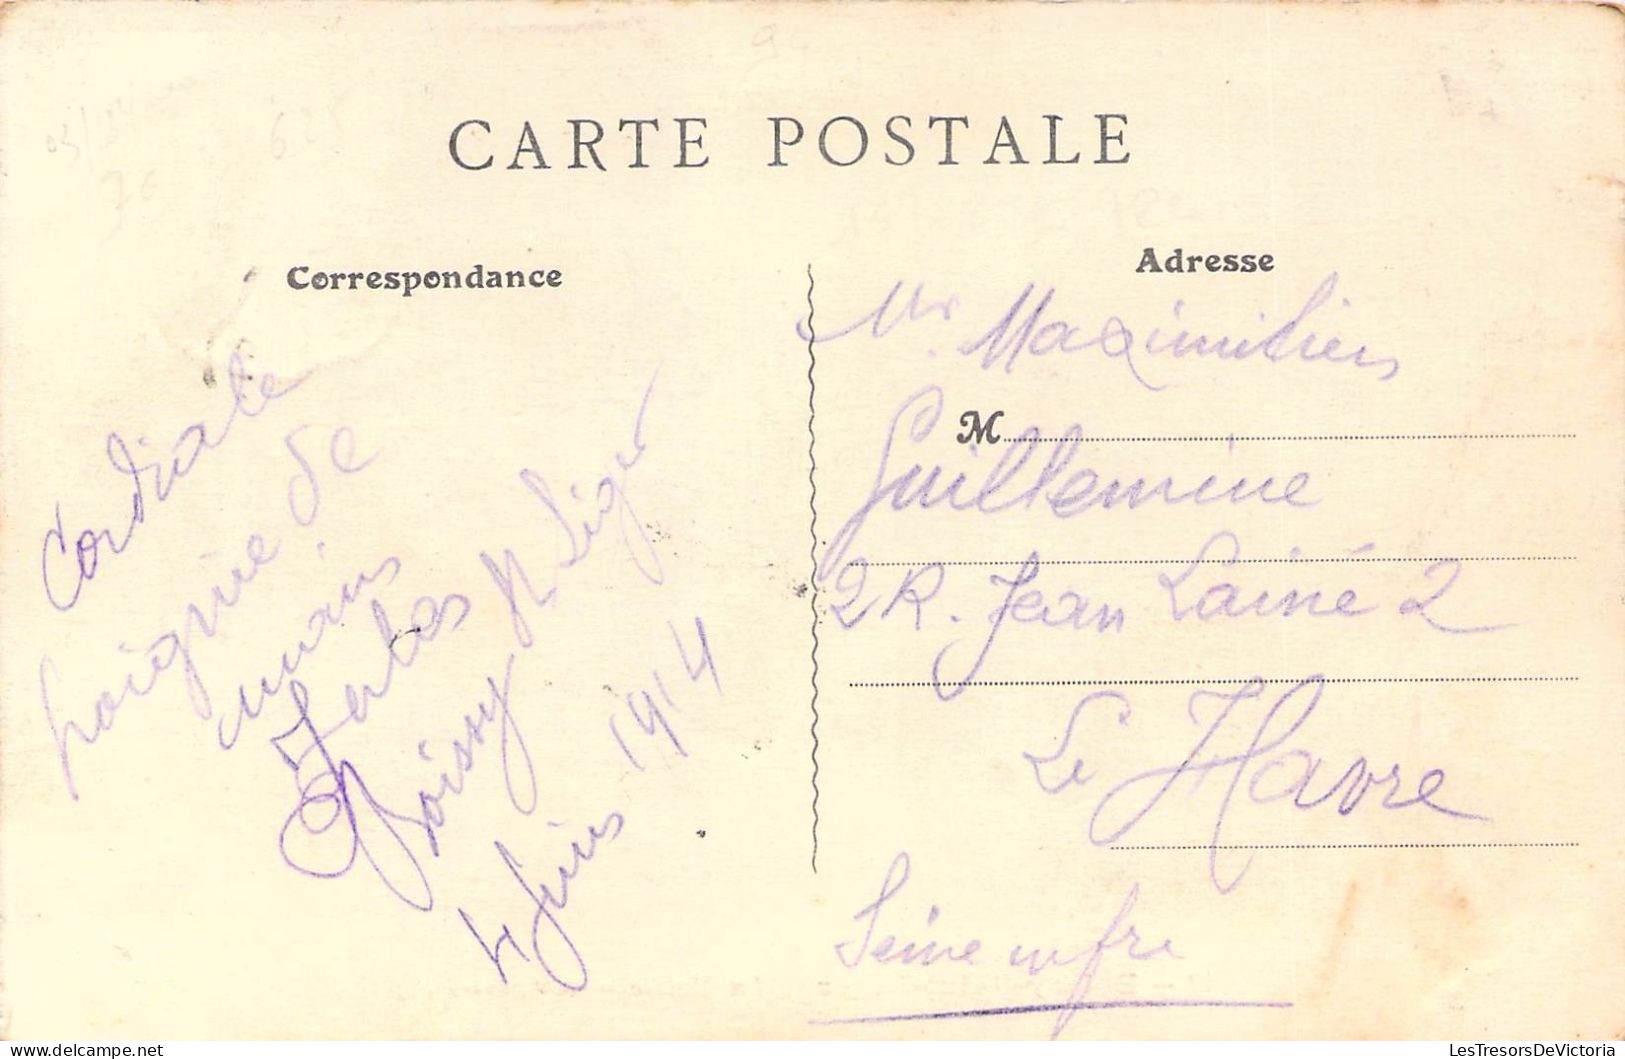 CARTE POSTALE
Correspondance
Cordiale
poignée de
mains
Boissy St Léger
4 Juin 1914
Adresse
Mr Maximilien
M
Guillemine
2 R. Jean Lainé 2
Le Havre
Seine infre
LesTresorsDeVictoria